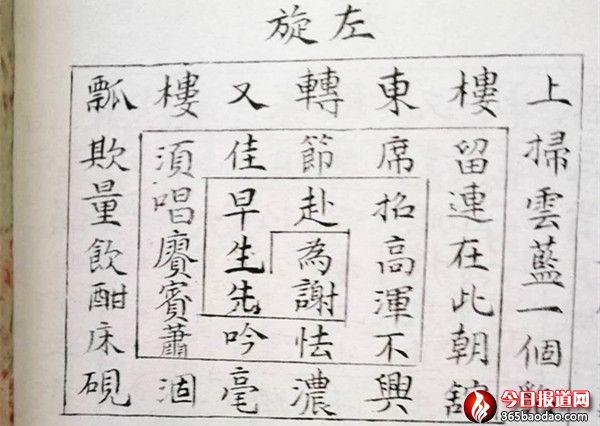 左旋
上掃雲藍一個
樓留連在此朝
東席招高渾不興
轉節赴為謝怯濃
又佳早生先吟毫
樓湏唱賡賓蕭涸
瓢欺量飲酣床硯
今日报道网
365baodao.com